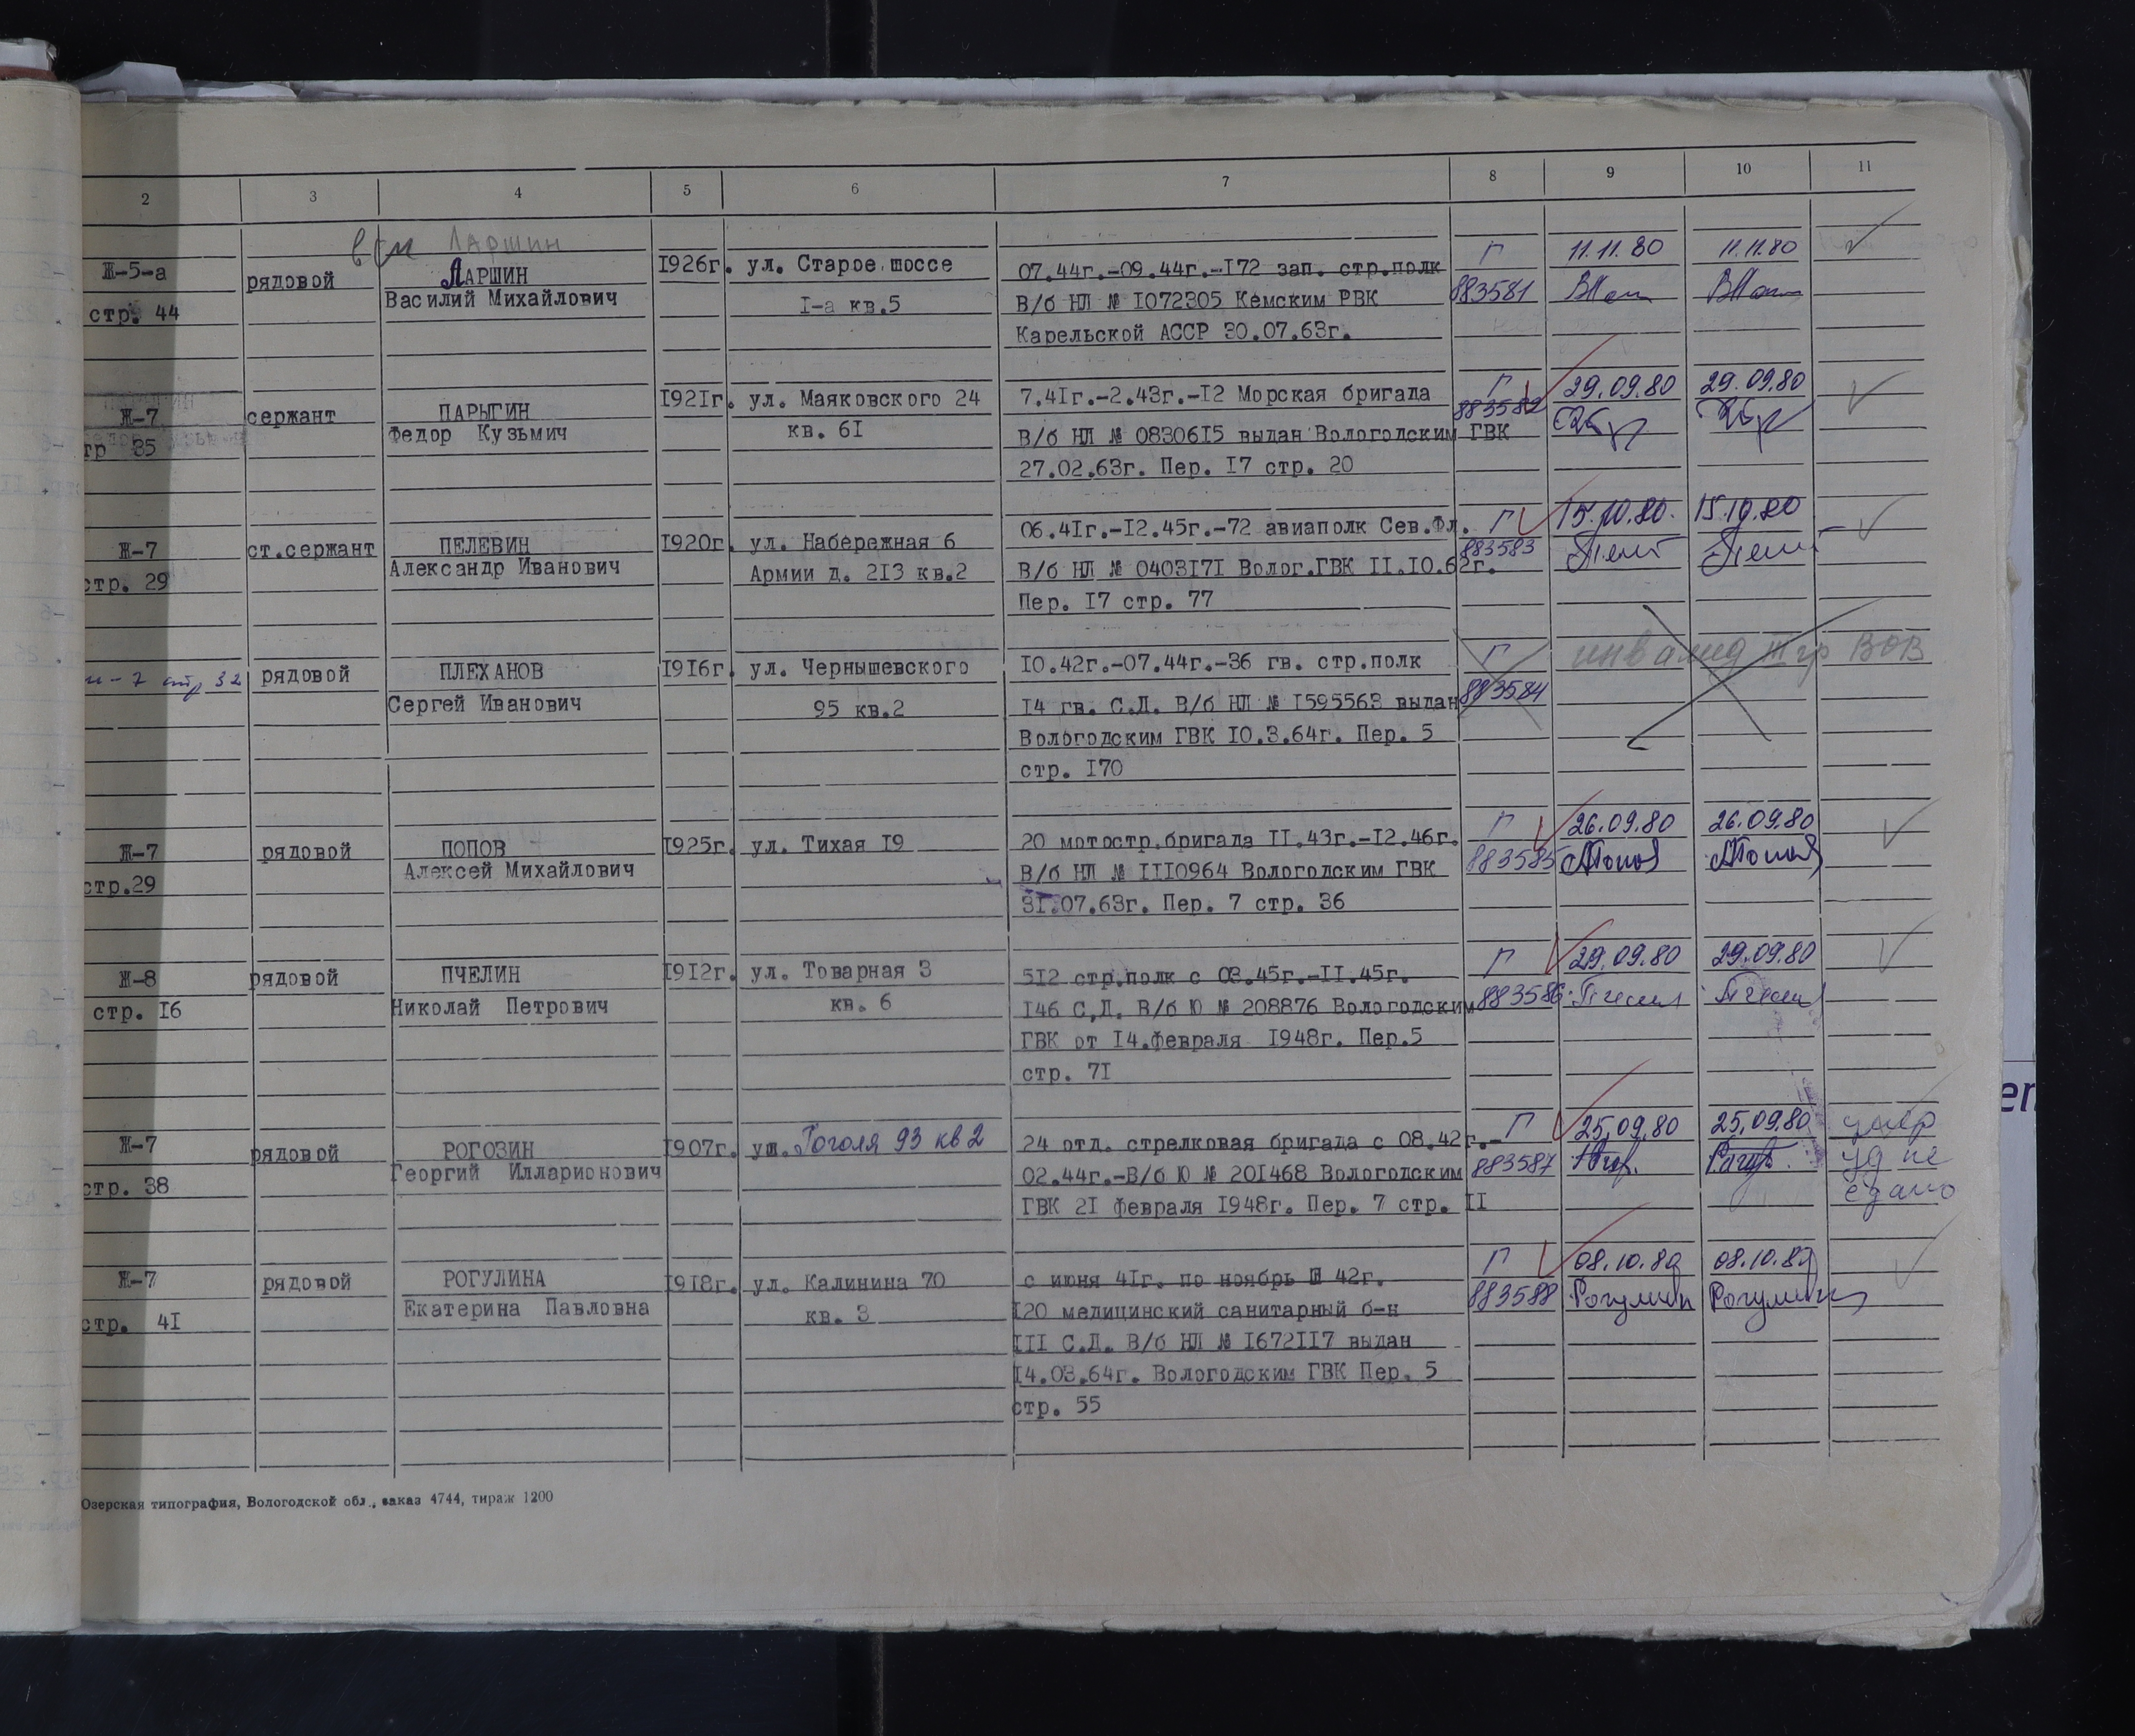 2 3 4 5 6 7 8 9 10 11
Ларшин
Ж-5-а рядовой ЛАРШИН 1926г. ул. Старое шоссе 07.44г.-09.44г.-172 зап. стр.полк Г 11.11.80 11.11.80
стр. 44 Василий Михайлович 1-а кв.5 В/б НЛ № 1072305 Кемским РВК 883581
Карельской АССР 30.07.63г.
Ж-7 сержант ПАРЫГИН 1921г. ул. Маяковского 24 7.41г.-2.43г.-12 Морская бригада Г 29.09.80 29.09.80
тр 35 Федор Кузьмич кв. 61 В/б НЛ № 0830615 выдан Вологодским ГВК 883582
27.02.63г. Пер. 17 стр. 20
Ж-7 ст.сержант ПЕЛЕВИН 1920г. ул. Набережная 6 06.41г.-12.45г.-72 авиаполк Сев.Фл. Г 15.10.80. 15.10.80
стр. 29 Александр Иванович Армии д. 213 кв.2 В/б НЛ № 0403171 Волог.ГВК 11.10.62г. 883583
Пер. 17 стр. 77
-7 стр 32 рядовой ПЛЕХАНОВ 1916г. ул. Чернышевского 10.42г.-07.44г.-36 гв. стр.полк Г инвалид III гр ВОВ
Сергей Иванович 95 кв.2 14 гв. С.Д. В/б НЛ № 1595563 выдан 883584
Вологодским ГВК 10.3.64г. Пер. 5
стр. 170
Ж-7 рядовой ПОПОВ 1925г. ул. Тихая 19 20 мотостр.бригада 11.43г.-12.46г. Г 26.09.80 26.09.80
стр.29 Алексей Михайлович В/б НЛ № 1110964 Вологодским ГВК 883585 АПопов АПопов
31.07.63г. Пер. 7 стр. 36
Ж-8 рядовой ПЧЕЛИН 1912г. ул. Товарная 3 512 стр.полк с 08.45г.-11.45г. Г 29.09.80 29.09.80
стр. 16 Николай Петрович кв. 6 146 С.Д. В/б Ю № 208876 Вологодским 883586
ГВК от 14.февраля 1948г. Пер.5
стр. 71
Ж-7 рядовой РОГОЗИН 1907г. ул. Гоголя 93 кв 2 24 отд. стрелковая бригада с 08.42г.- Г 25.09.80 25.09.80 умер
стр. 38 Георгий Илларионович 02.44г.-В/б Ю № 201468 Вологодским 883587 уд не
ГВК 21 февраля 1948г. Пер. 7 стр. 11 сдано
Ж-7 рядовой РОГУЛИНА 1918г. ул. Калинина 70 с июня 41г. по ноябрь 42г. Г 08.10.80 08.10.80
стр. 41 Екатерина Павловна кв. 3 120 медицинский санитарный б-н 883588 Рогулин Рогулин
111 С.Д. В/б НЛ № 1672117 выдан
14.03.64г. Вологодским ГВК Пер. 5
стр. 55
Озерская типография, Вологодской обл., заказ 4744, тираж 1200